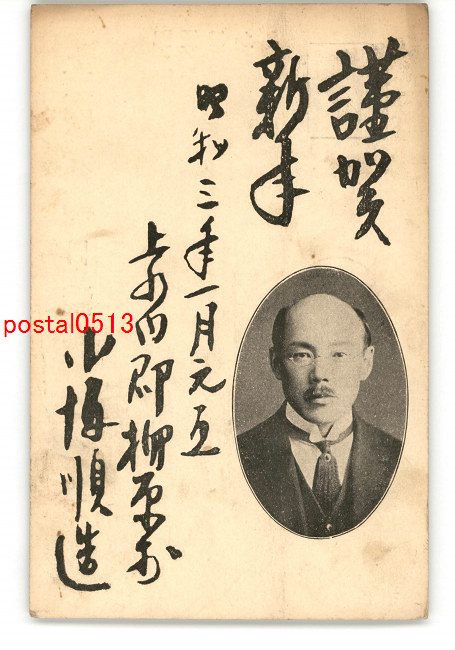 謹賀
新年
昭和三年一月元旦
上水内郡柳原村
小坂順造
postal0513